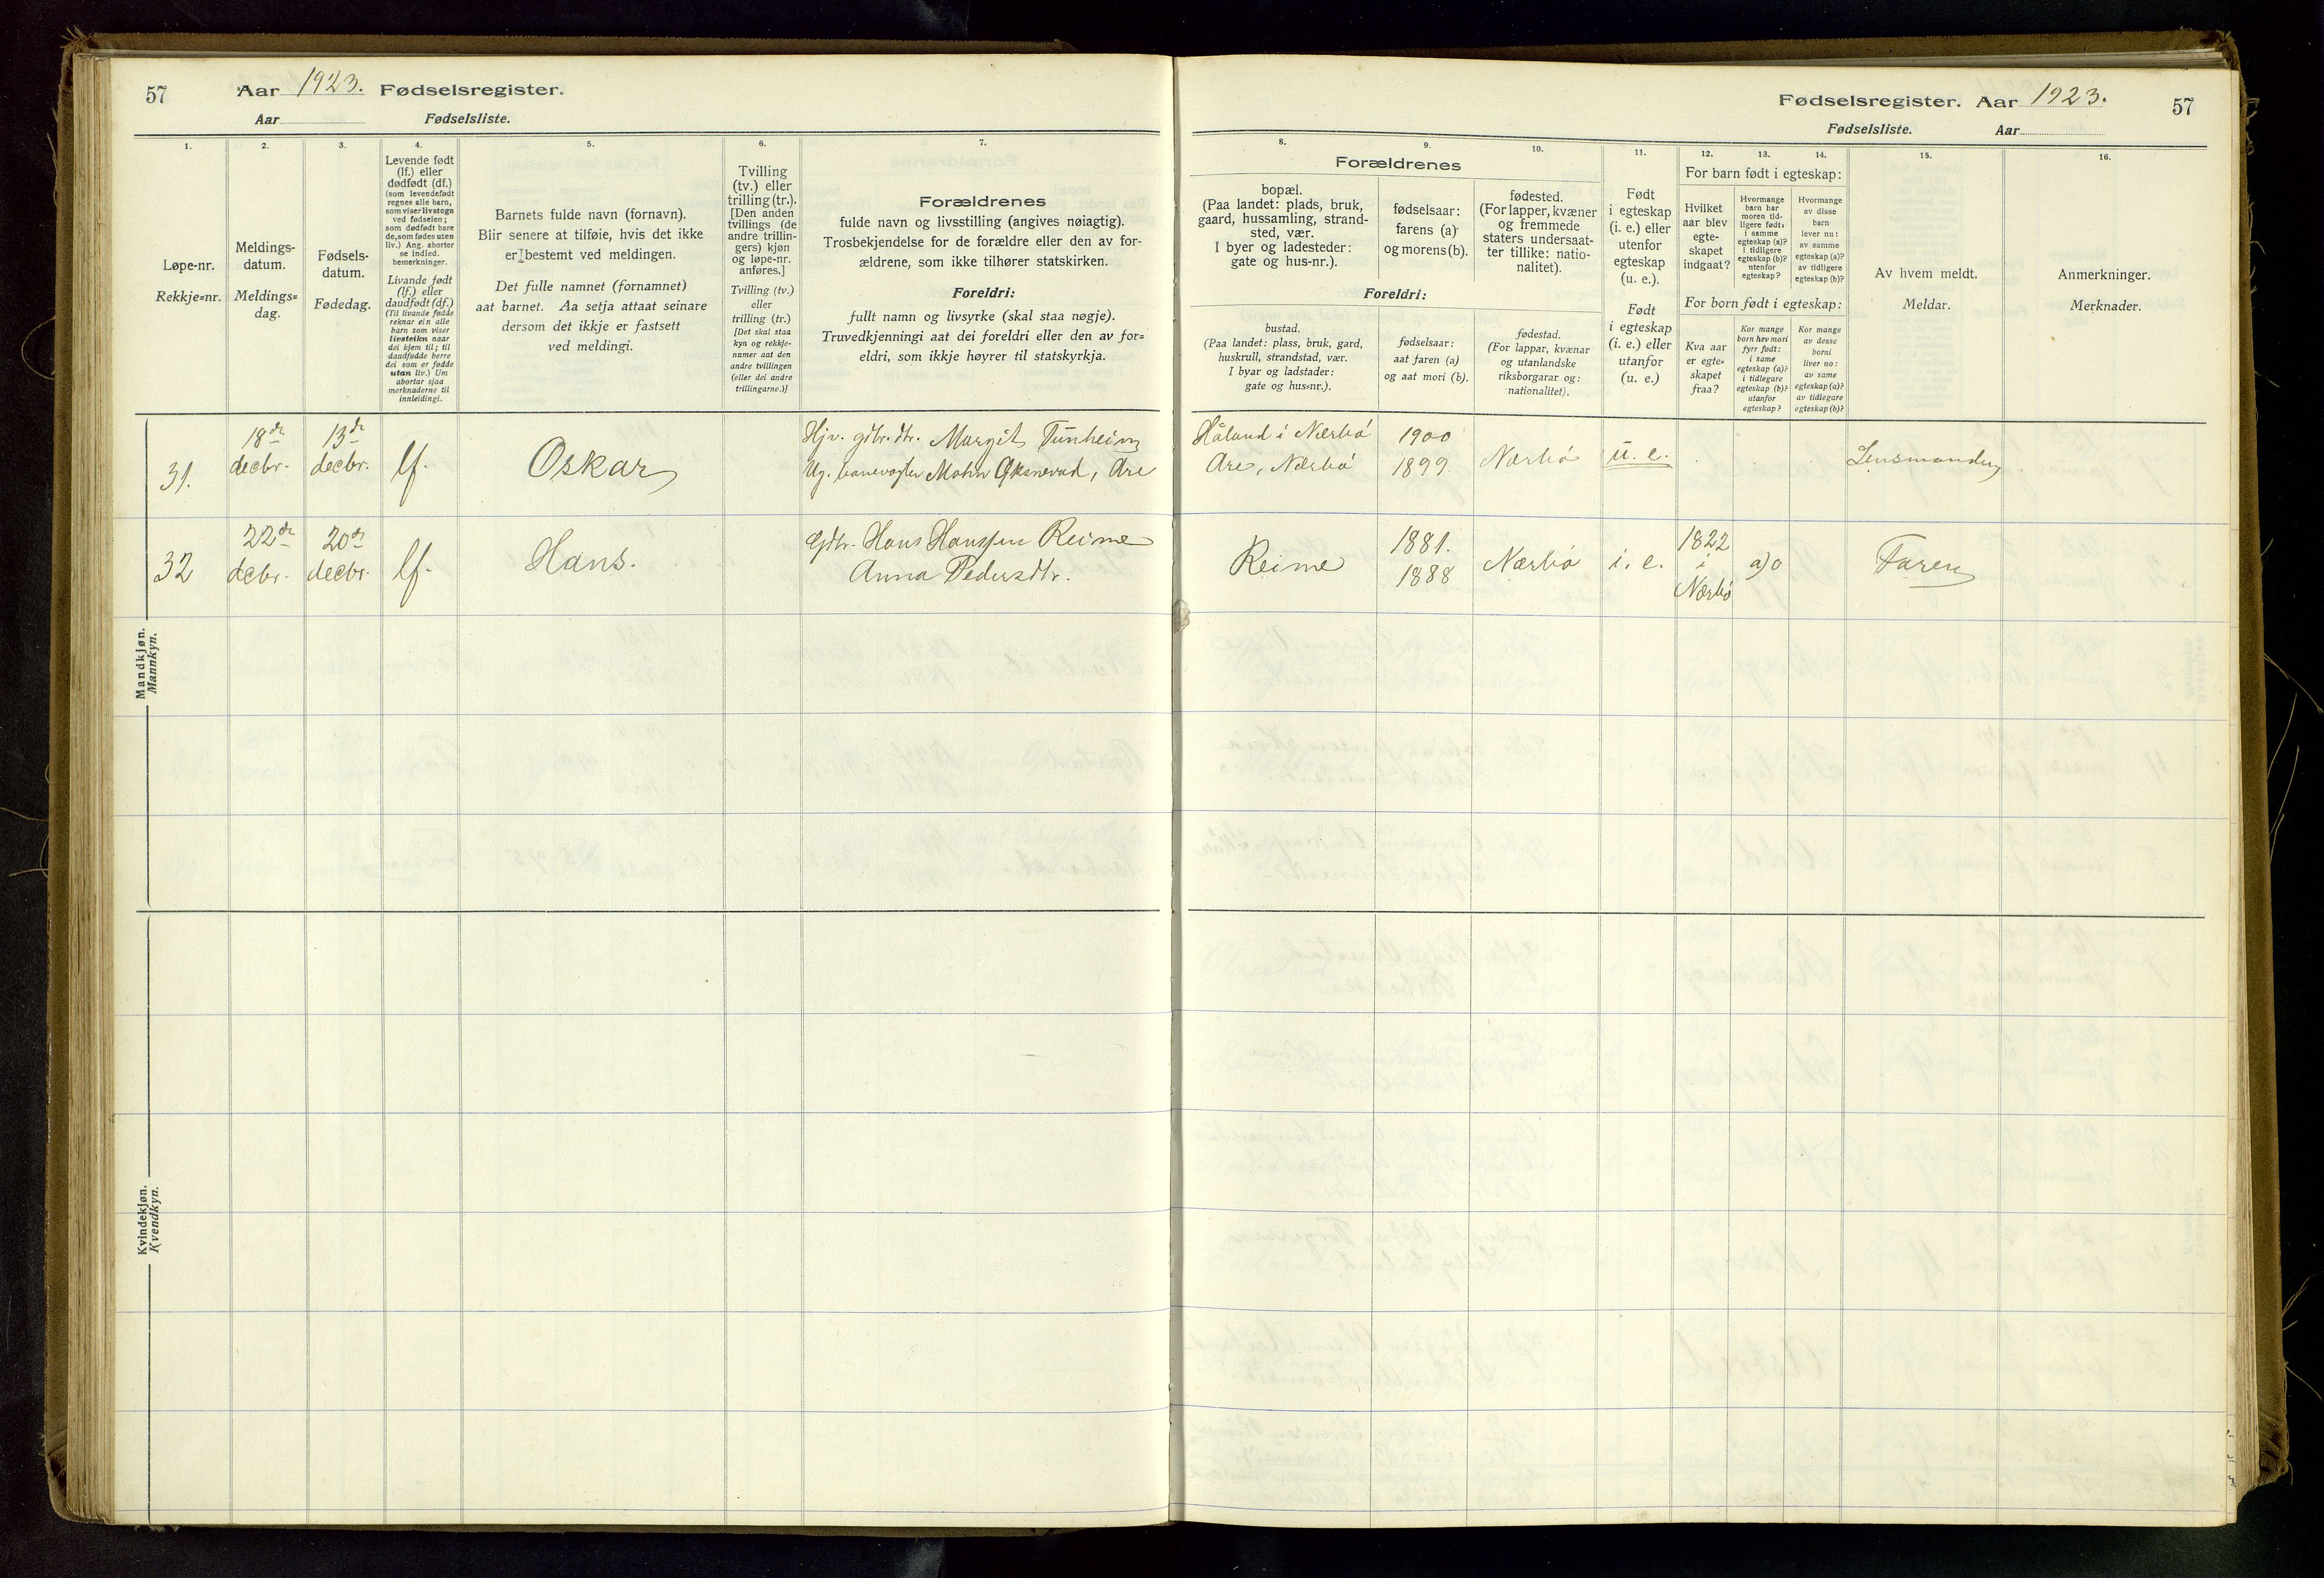 57
Aar 1923. Fødselsregister.
Aar Fødselsliste.
1.
Løpe-nr.
Rekkje=nr.
2.
Meldings-
datum.
Meldings=
dag.
3.
Fødsels-
datum.
Fødedag.
4.
Levende født
(lf.) eller
dødfødt (df.)
(som levendefødt
regnes alle barn,
som viser livstegn
ved fødselen;
som dødfødt bare
de, som fødes uten
liv.) Ang. aborter
se indled.
bemerkninger.
Livande født
(lf.) eller
daudfødt (df.)
(Til livande fødde
reknar ein alle
barn som viser
livsteikn naar
dei kjem til; til
daudfødde berre
dei som er fødde
utan liv.) Um
abortar sjaa
merknaderne til
innleidingi.
5.
Barnets fulde navn (fornavn).
Blir senere at tilføie, hvis det ikke
er bestemt ved meldingen.
Det fulle namnet (fornamnet)
aat barnet. Aa setja attaat seinare
dersom det ikkje er fastsett
ved meldingi.
6.
Tvilling
(tv.) eller
trilling (tr.).
[Den anden
tvillings (de
andre trillin-
gers) kjøn
og løpe-nr.
anføres.]
Tvilling (tv.)
eller
trilling (tr.)
[Det skal staa
kyn og rekkje-
numer aat den
andre tvillingen
(eller dei andre
trillingarne.)]
7.
Forældrenes
fulde navn og livsstilling (angives nøiagtig).
Trosbekjendelse for de forældre eller den av for-
ældrene, som ikke tilhører statskirken.
Foreldri:
fullt namn og livsyrke (skal staa nøgje).
Truvedkjenningi aat dei foreldri eller den av for=
eldri, som ikkje høyrer til statskyrkja.
31.
18de
decbr.
13de
decbr.
lf.
Oskar
Hjv. gdbr. dtr. Margit Tunheim
Ug. banevogter Motin Oksnevad, Are
32
22de
decbr.
20de
decbr.
lf.
Hans.
Gdbr. Hans Hanssen Reime
Anna Pedersdtr.
Mandkjøn.
Mannkyn.
Kvindekjøn.
Kvendkyn.
Fødselsregister. Aar 1923.
57
Fødselsliste. Aar
Forældrenes
8.
bopæl.
(Paa landet: plads, bruk,
gaard, hussamling, strand-
sted, vær.
I byer og ladesteder:
gate og hus-nr.).
9.
fødselsaar:
farens (a)
og morens (b).
10.
fødested.
(For lapper, kvæner
og fremmede
staters undersaat-
ter tillike: natio-
nalitet).
Foreldri:
bustad.
(Paa landet: plass, bruk, gard,
huskrull, strandstad, vær.
I byar og ladstader:
gate og hus=nr.).
fødselsaar:
aat faren (a)
og aat mori (b).
fødestad.
(For lappar, kvænar
og utanlandske
riksborgarar og:
nationalitet).
11.
Født
i egteskap
(i. e.) eller
utenfor
egteskap
(u. e.).
Født
i egteskap
(i. e.) eller
utanfor
(u. e.)
12. 13. 14.
For barn født i egteskap:
Hvilket
aar blev
egte-
skapet
indgaat?
Hvormange
barn har
moren tid-
ligere født:
i samme
egteskap (a)?
i tidligere
egteskap (b)?
utenfor
egteskap?
Hvormange
av disse
barn
lever nu:
av samme
egteskap (a)?
av tidligere
egteskap (b)?
For born født i egteskap:
Kva aar
er egte=
skapet
fraa?
Kor mange
born hev mori
fyrr født:
i same
egteskap (a)?
i tidlegare
egteskap (b)?
utanfor
egteskap?
Kor mange
av desse
borni
liver no:
av same
egteskap (a)?
av tidlegare
egteskap (b)?
15.
Av hvem meldt.
Meldar.
16.
Anmerkninger.
Merknader.
Håland i Nærbø
Are, Nærbø
1900
1899.
Nærbø
u. e.
Lensmanden
Reime
1881.
1888
Nærbø
i. e.
1822
i
Nærbø
a) 0
Faren